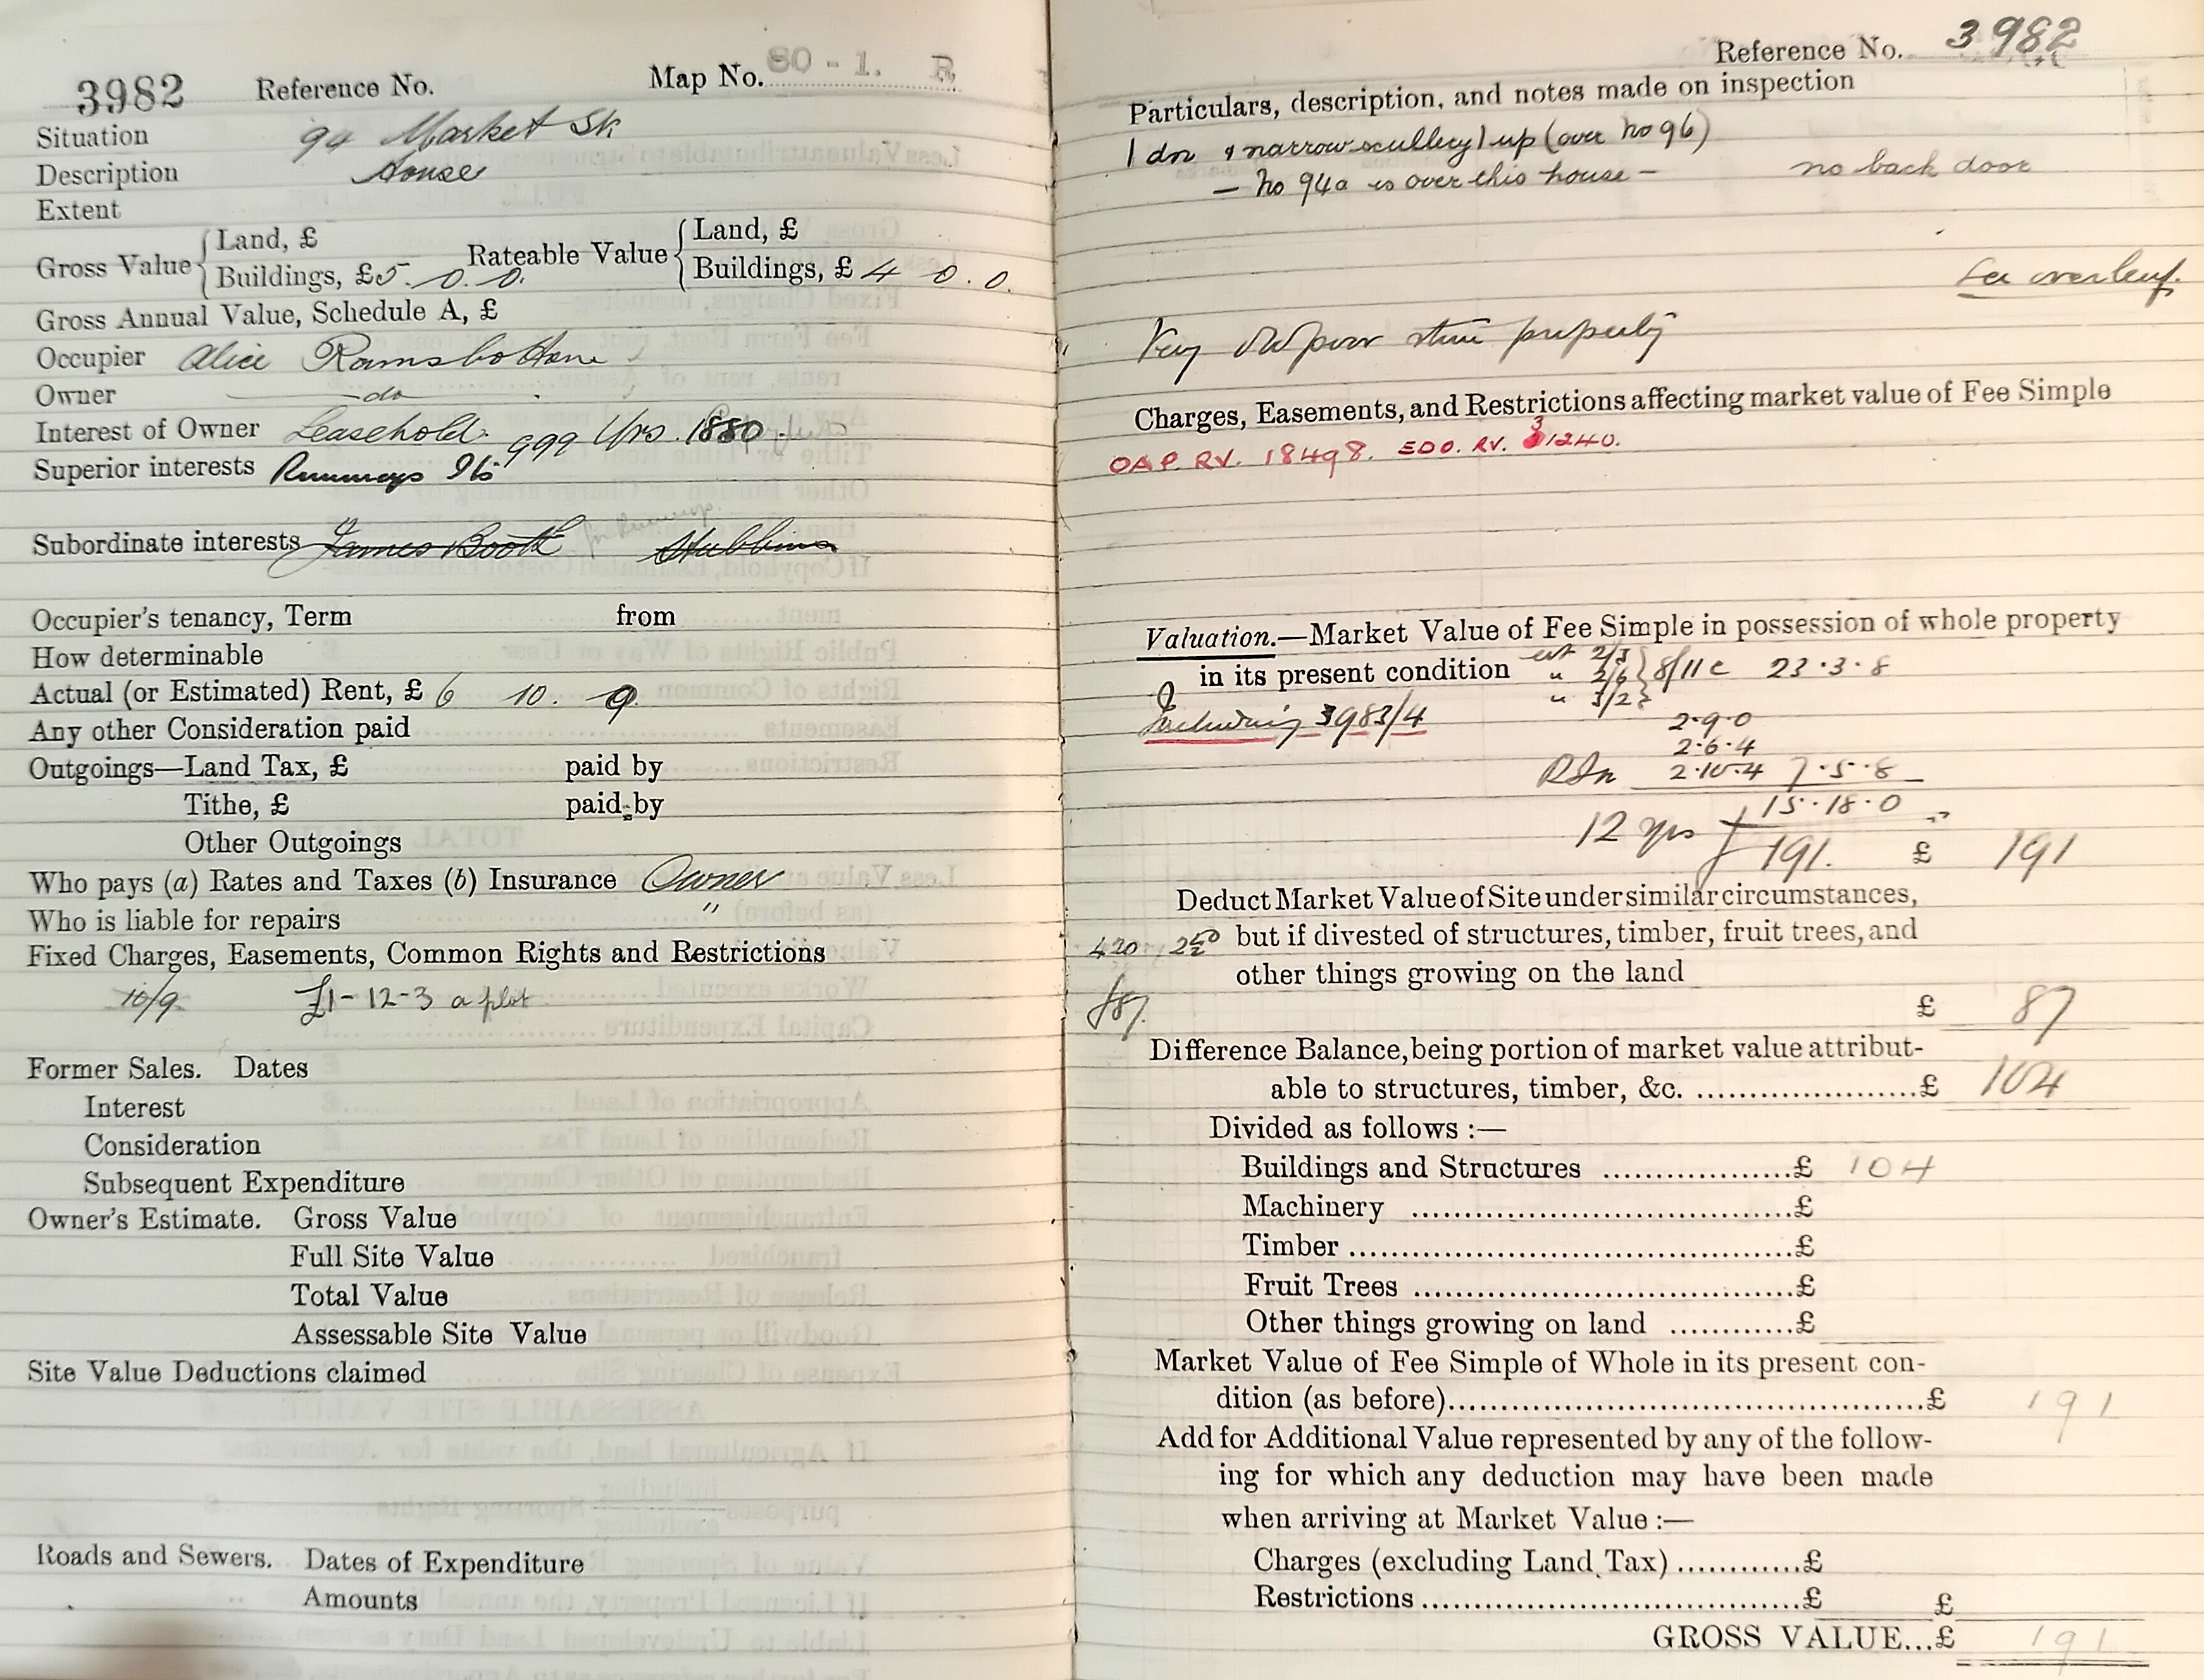 3982 Reference No. Map No. 80 - 1. R
Situation 94 Market St
Description House
Extent
Gross Value { Land, £
Buildings, £5. 0. 0.
Rateable Value { Land, £
Buildings, £ 4 0. 0.
Gross Annual Value, Schedule A, £
Occupier Alice Ramsbottom
Owner do
Interest of Owner Leasehold. 999 Yrs. 1880.
Superior interests Rumneys
Subordinate interests James Booth Stubbins
Occupier's tenancy, Term from
How determinable
Actual (or Estimated) Rent, £ 6 10. 0.
Any other Consideration paid
Outgoings—Land Tax, £ paid by
Tithe, £ paid by
Other Outgoings
Who pays (a) Rates and Taxes (b) Insurance Owner
Who is liable for repairs "
Fixed Charges, Easements, Common Rights and Restrictions
10/9 £1-12-3 a plot
Former Sales. Dates
Interest
Consideration
Subsequent Expenditure
Owner's Estimate. Gross Value
Full Site Value
Total Value
Assessable Site Value
Site Value Deductions claimed
Roads and Sewers. Dates of Expenditure
Amounts
Reference No. 3982
Particulars, description, and notes made on inspection
1 dn & narrow scullery 1 up (over No 96)
— No 94a is over this house — no back door
See overleaf.
Very old poor stone property
Charges, Easements, and Restrictions affecting market value of Fee Simple
OAP. RV. 18498. EDO. RV. 31240.
Valuation.—Market Value of Fee Simple in possession of whole property
in its present condition est 2/3
" 2/6 } 8/11 c 23·3·8
" 3/2
Including 3983/4
2·9·0
2·6·4
2·10·4 7·5·8
15·18·0
12 yrs £191. £ 191
Deduct Market Value of Site under similar circumstances,
but if divested of structures, timber, fruit trees, and
other things growing on the land
£87. £ 87
Difference Balance, being portion of market value attribut-
able to structures, timber, &c. ......................£ 104
Divided as follows :—
Buildings and Structures ....................£ 104
Machinery ........................................£
Timber ..............................................£
Fruit Trees ........................................£
Other things growing on land ............£
Market Value of Fee Simple of Whole in its present con-
dition (as before)..................................................£ 191
Add for Additional Value represented by any of the follow-
ing for which any deduction may have been made
when arriving at Market Value :—
Charges (excluding Land Tax) .............£
Restrictions..........................................£ £
GROSS VALUE...£ 191